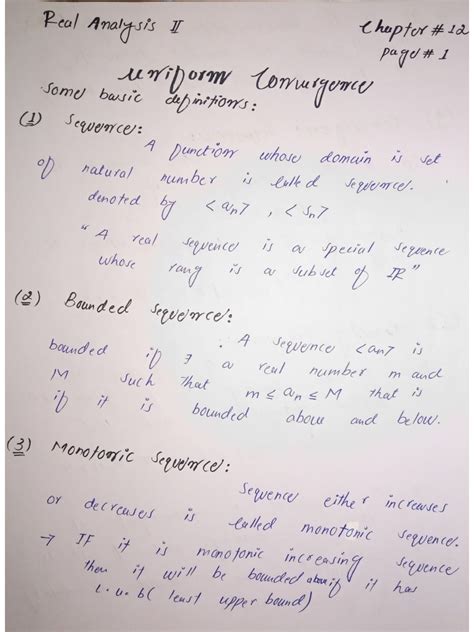 Real Analysis II
Chapter # 12
page # 1
Uniform Convergence
Some basic definitions:
(1) Sequence:
A function whose domain is set
of natural number is called sequence.
denoted by <an>, <Sn>
"A real sequence is a special sequence
whose rang is a subset of IR"
(2) Bounded Sequence:
A sequence <an> is
bounded if ∃ a real number m and
M such that m ≤ an ≤ M that is
if it is bounded above and below.
(3) Monotonic Sequence:
Sequence either increases
or decreases is called monotonic sequence.
→ IF it is monotonic increasing sequence
then it will be bounded above if it has
l.u.b( least upper bound)